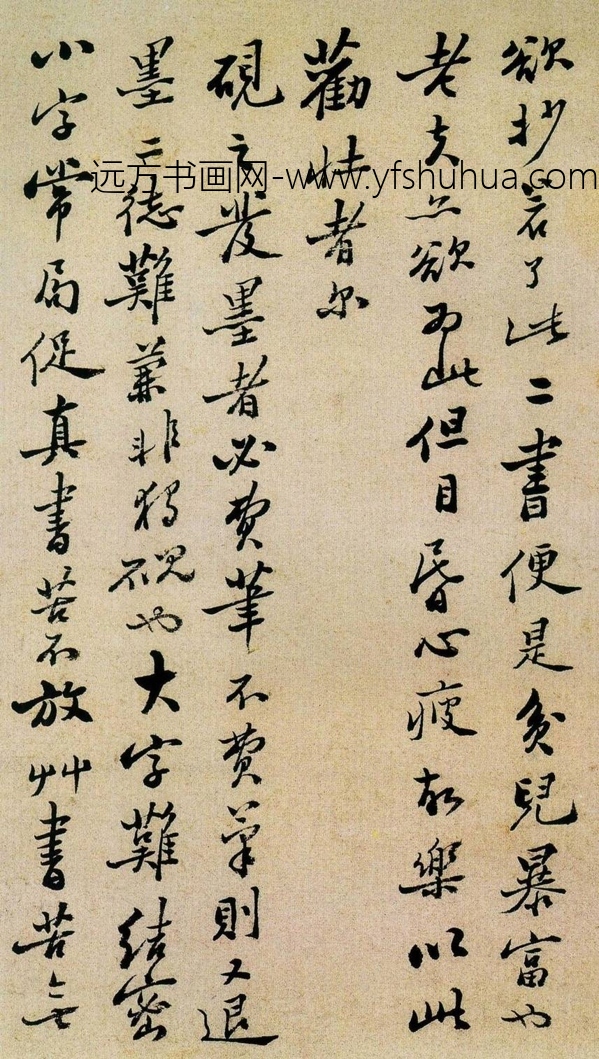 欲抄若了此二書便是貧兒暴富也
老夫亦欲為此但目昏心疲故樂以此
勸壯者尔
硯之發墨者必費筆不費筆則又退
墨二德難兼非獨硯也大字難結密
小字常局促真書苦不放艸書苦無
远方书画网-www.yfshuhua.com